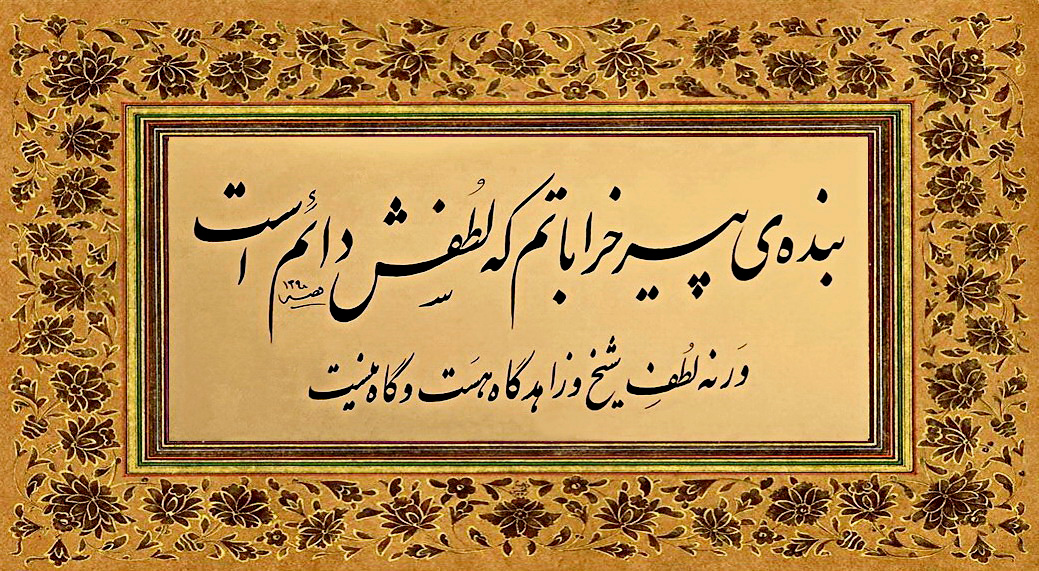 بنده‌ی پیر خراباتم که لُطفِش دائم است
وَرنه لُطفِ شیخ و زاهد گاه هَست و گاه نیست
۱۳۹۰